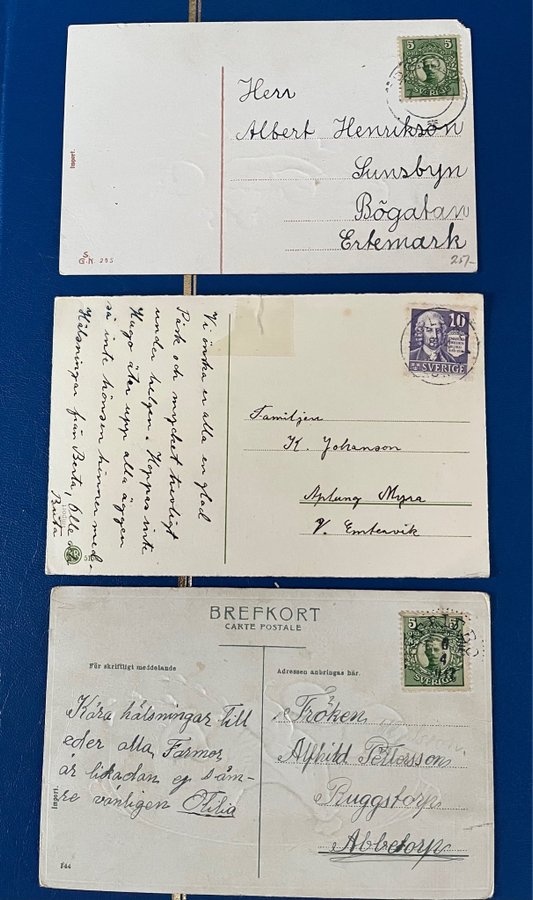 5 5
SVERIGE
Herr
Albert Henrikson
Sunsbyn
Bögatan
Ertemark
Import.
S
G.N. 295
257-
10
SVERIGE
Vi önska er alla en glad
Påsk och mycket trevligt
under helgen. Hoppas inte
Hugo äter upp alla äggen
så inte hönsen hinner med.
Hälsningar från Berta, Olle
Brita
Familjen
K. Johanson
Aplung Myra
V. Emtervik
BREFKORT
CARTE POSTALE
5
SVERIGE
8
4
17
För skriftligt meddelande
Adressen anbringas här.
Kära hälsningar till
eder alla Farmor
är likadan ej säm-
re vänligen Otilia
Fröken
Alfhild Pettersson
Ruggstorp
Abbetorp
Import.
544